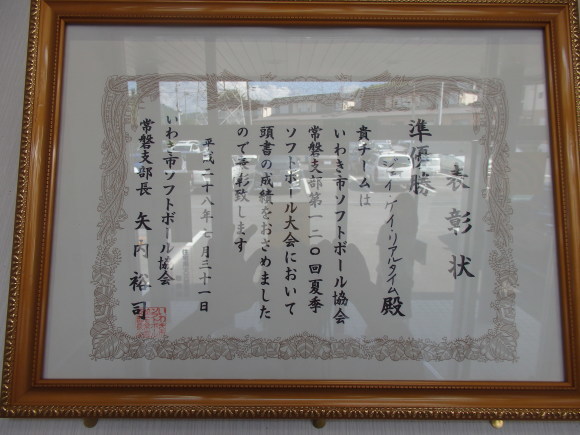 表彰状
準優勝
ジェイ・ケイ・リアルタイム殿
貴チームは
いわき市ソフトボール協会
常磐支部第一二〇回夏季
ソフトボール大会において
頭書の成績をおさめました
ので表彰致します
平成二十八年 月三十一日
いわき市ソフトボール協会
常磐支部長 矢内裕司